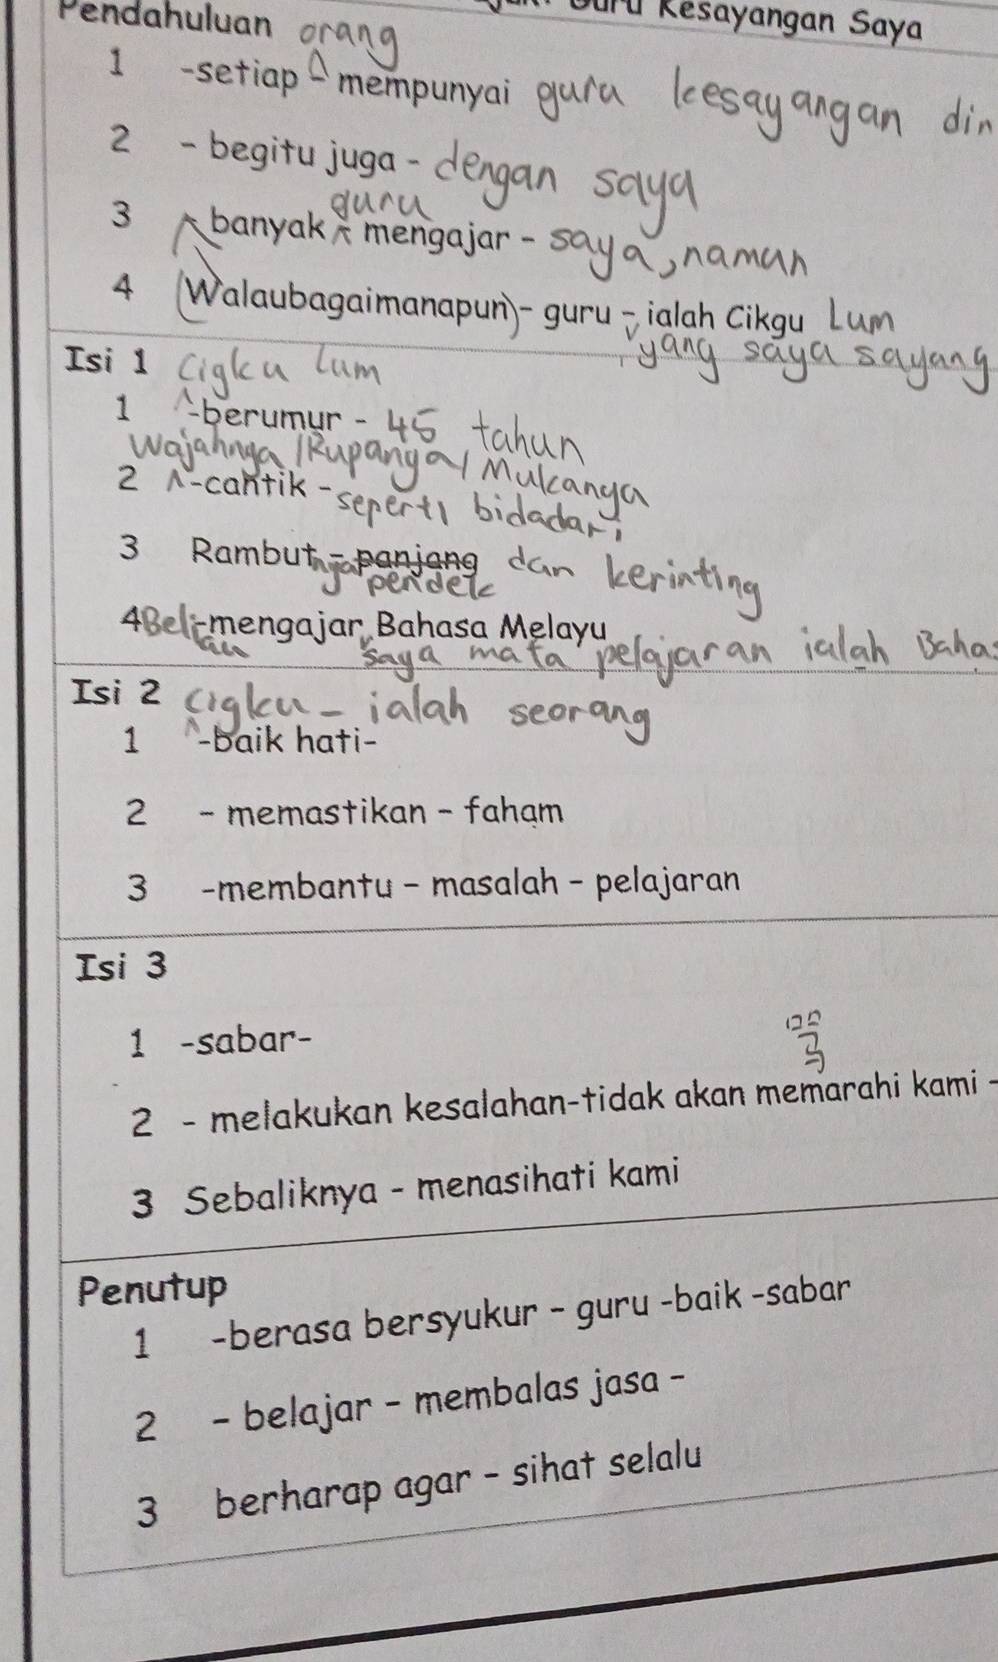 Kesayangan Saya
Pendahuluan orang
1 -setiap ^ mempunyai guru kesayangan din
2 - begitu juga - dengan saya
guru
3 banyak ^ mengajar - saya, namun
4 (Walaubagaimanapun) - guru - ialah Cikgu Lum
yang saya sayang
Isi 1 Cigku Lum
1 ^-berumur - 45 tahun
Wajahnya / Rupanya / Mukanya
2 ^-cantik - seperti bidadari
3 Rambutnya - panjang dan kerinting
pendek
4 Beliau - mengajar Bahasa Melayu
saya mata pelajaran ialah Baha
Isi 2 Cigku - ialah seorang
1 ^-baik hati-
2 - memastikan - faham
3 -membantu - masalah - pelajaran
Isi 3
1 -sabar-
骂
2 - melakukan kesalahan-tidak akan memarahi kami -
3 Sebaliknya - menasihati kami
Penutup
1 -berasa bersyukur - guru -baik -sabar
2 - belajar - membalas jasa -
3 berharap agar - sihat selalu